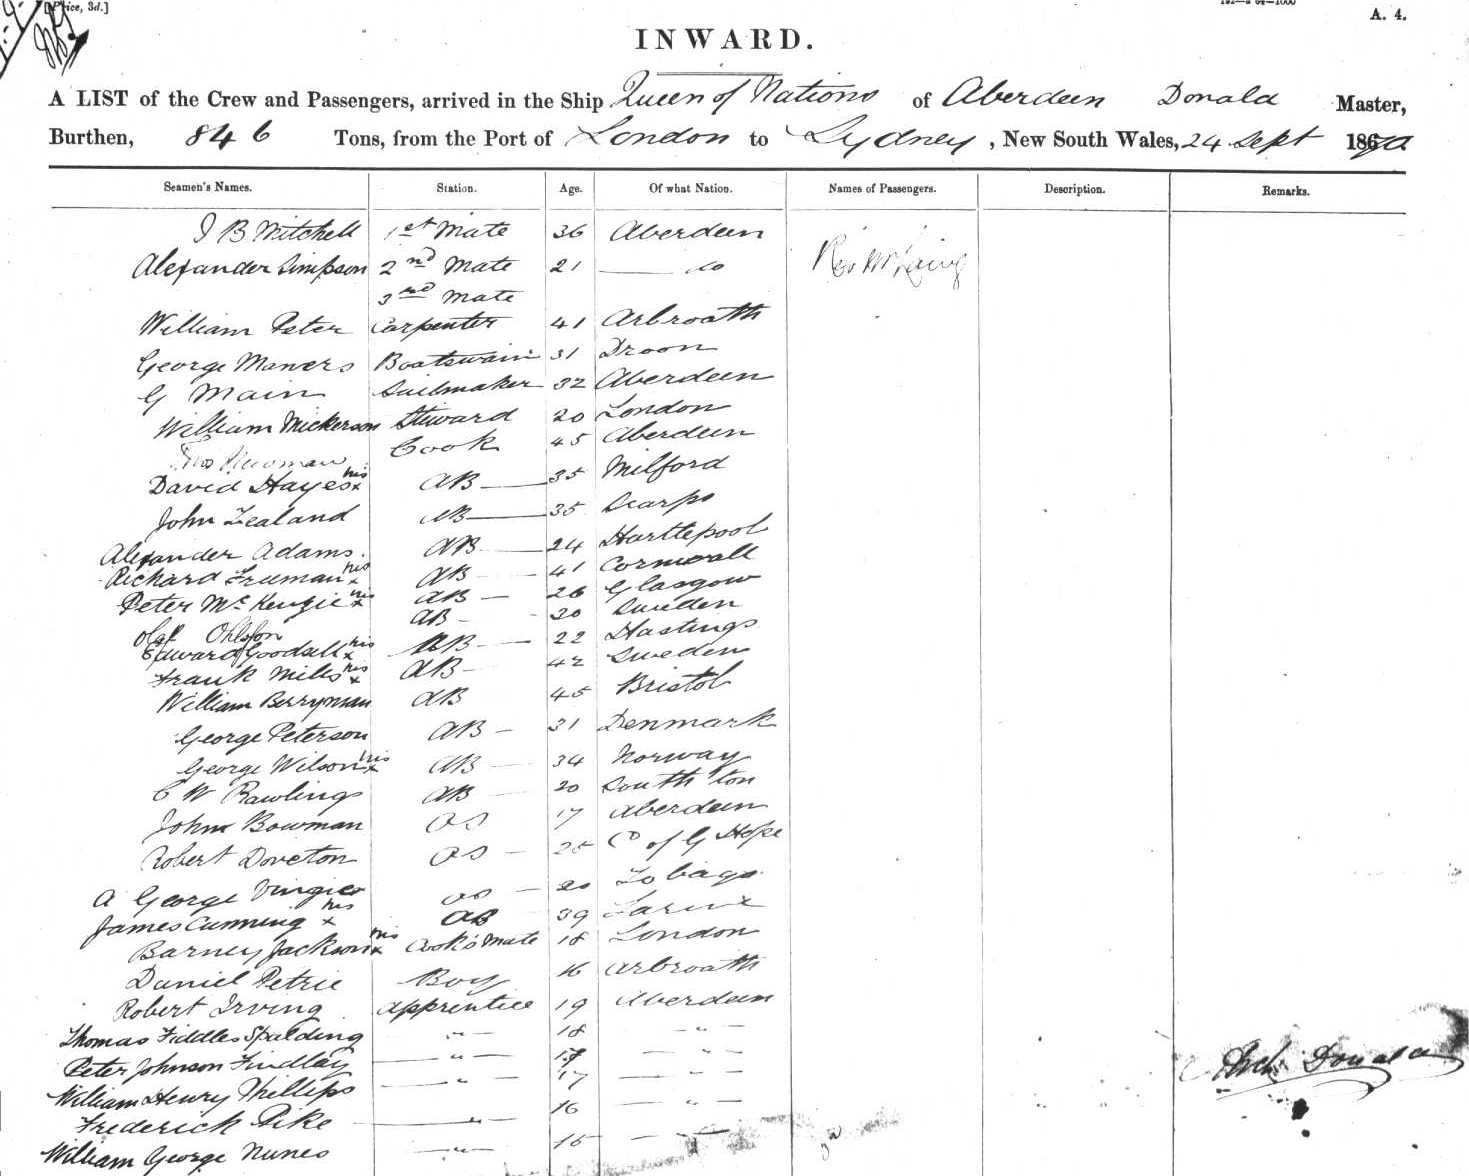 [Price, 3d.]
A. 4.
INWARD.
A LIST of the Crew and Passengers, arrived in the Ship Queen of Nations of Aberdeen Donald Master,
Burthen, 846 Tons, from the Port of London to Sydney, New South Wales, 24 Sept 1870
Seamen's Names. Station. Age. Of what Nation. Names of Passengers. Description. Remarks.
J B Mitchell 1st Mate 36 Aberdeen
Alexander Simpson 2nd Mate 21 — do Rev Mr Laing
3rd Mate
William Peter Carpenter 41 Arbroath
George Maners Boatswain 31 Droon
G Main Sailmaker 32 Aberdeen
William Mickerson Steward 20 London
Thos Newman Cook 45 Aberdeen
David Hayes his x AB — 35 Milford
John Zealand AB — 35
Alexander Adams AB — 24 Hartlepool
Richard Freeman his x AB — 41 Cornwall
Peter McKenzie his x AB — 26 Glasgow
Olaf Ohlson AB — 20 Sweden
Edward Goodsell his x AB — 22 Hastings
Frank Mills his x AB — 42 Sweden
William Berryman AB 45 Bristol
George Peterson AB — 31 Denmark
George Wilson his x AB — 34 Norway
C W Rawlings AB — 20 South'ton
John Bowman OS 17 Aberdeen
Robert Doveton OS — 25 C of G Hope
A George OS — 20 Tobago
James Cunning his x AB 39
Barney Jackson his x Cook's Mate 18 London
Daniel Petrie Boy 16 Arbroath
Robert Irving Apprentice 19 Aberdeen
Thomas Fiddles Spalding — " — 18 — " —
Peter Johnson Findlay — " — — " —
William Henry Phillips — " — 17 — " —
Frederick Pike — " — 16 — " —
William George Nunes — " — 15 — " —
Arch Donald